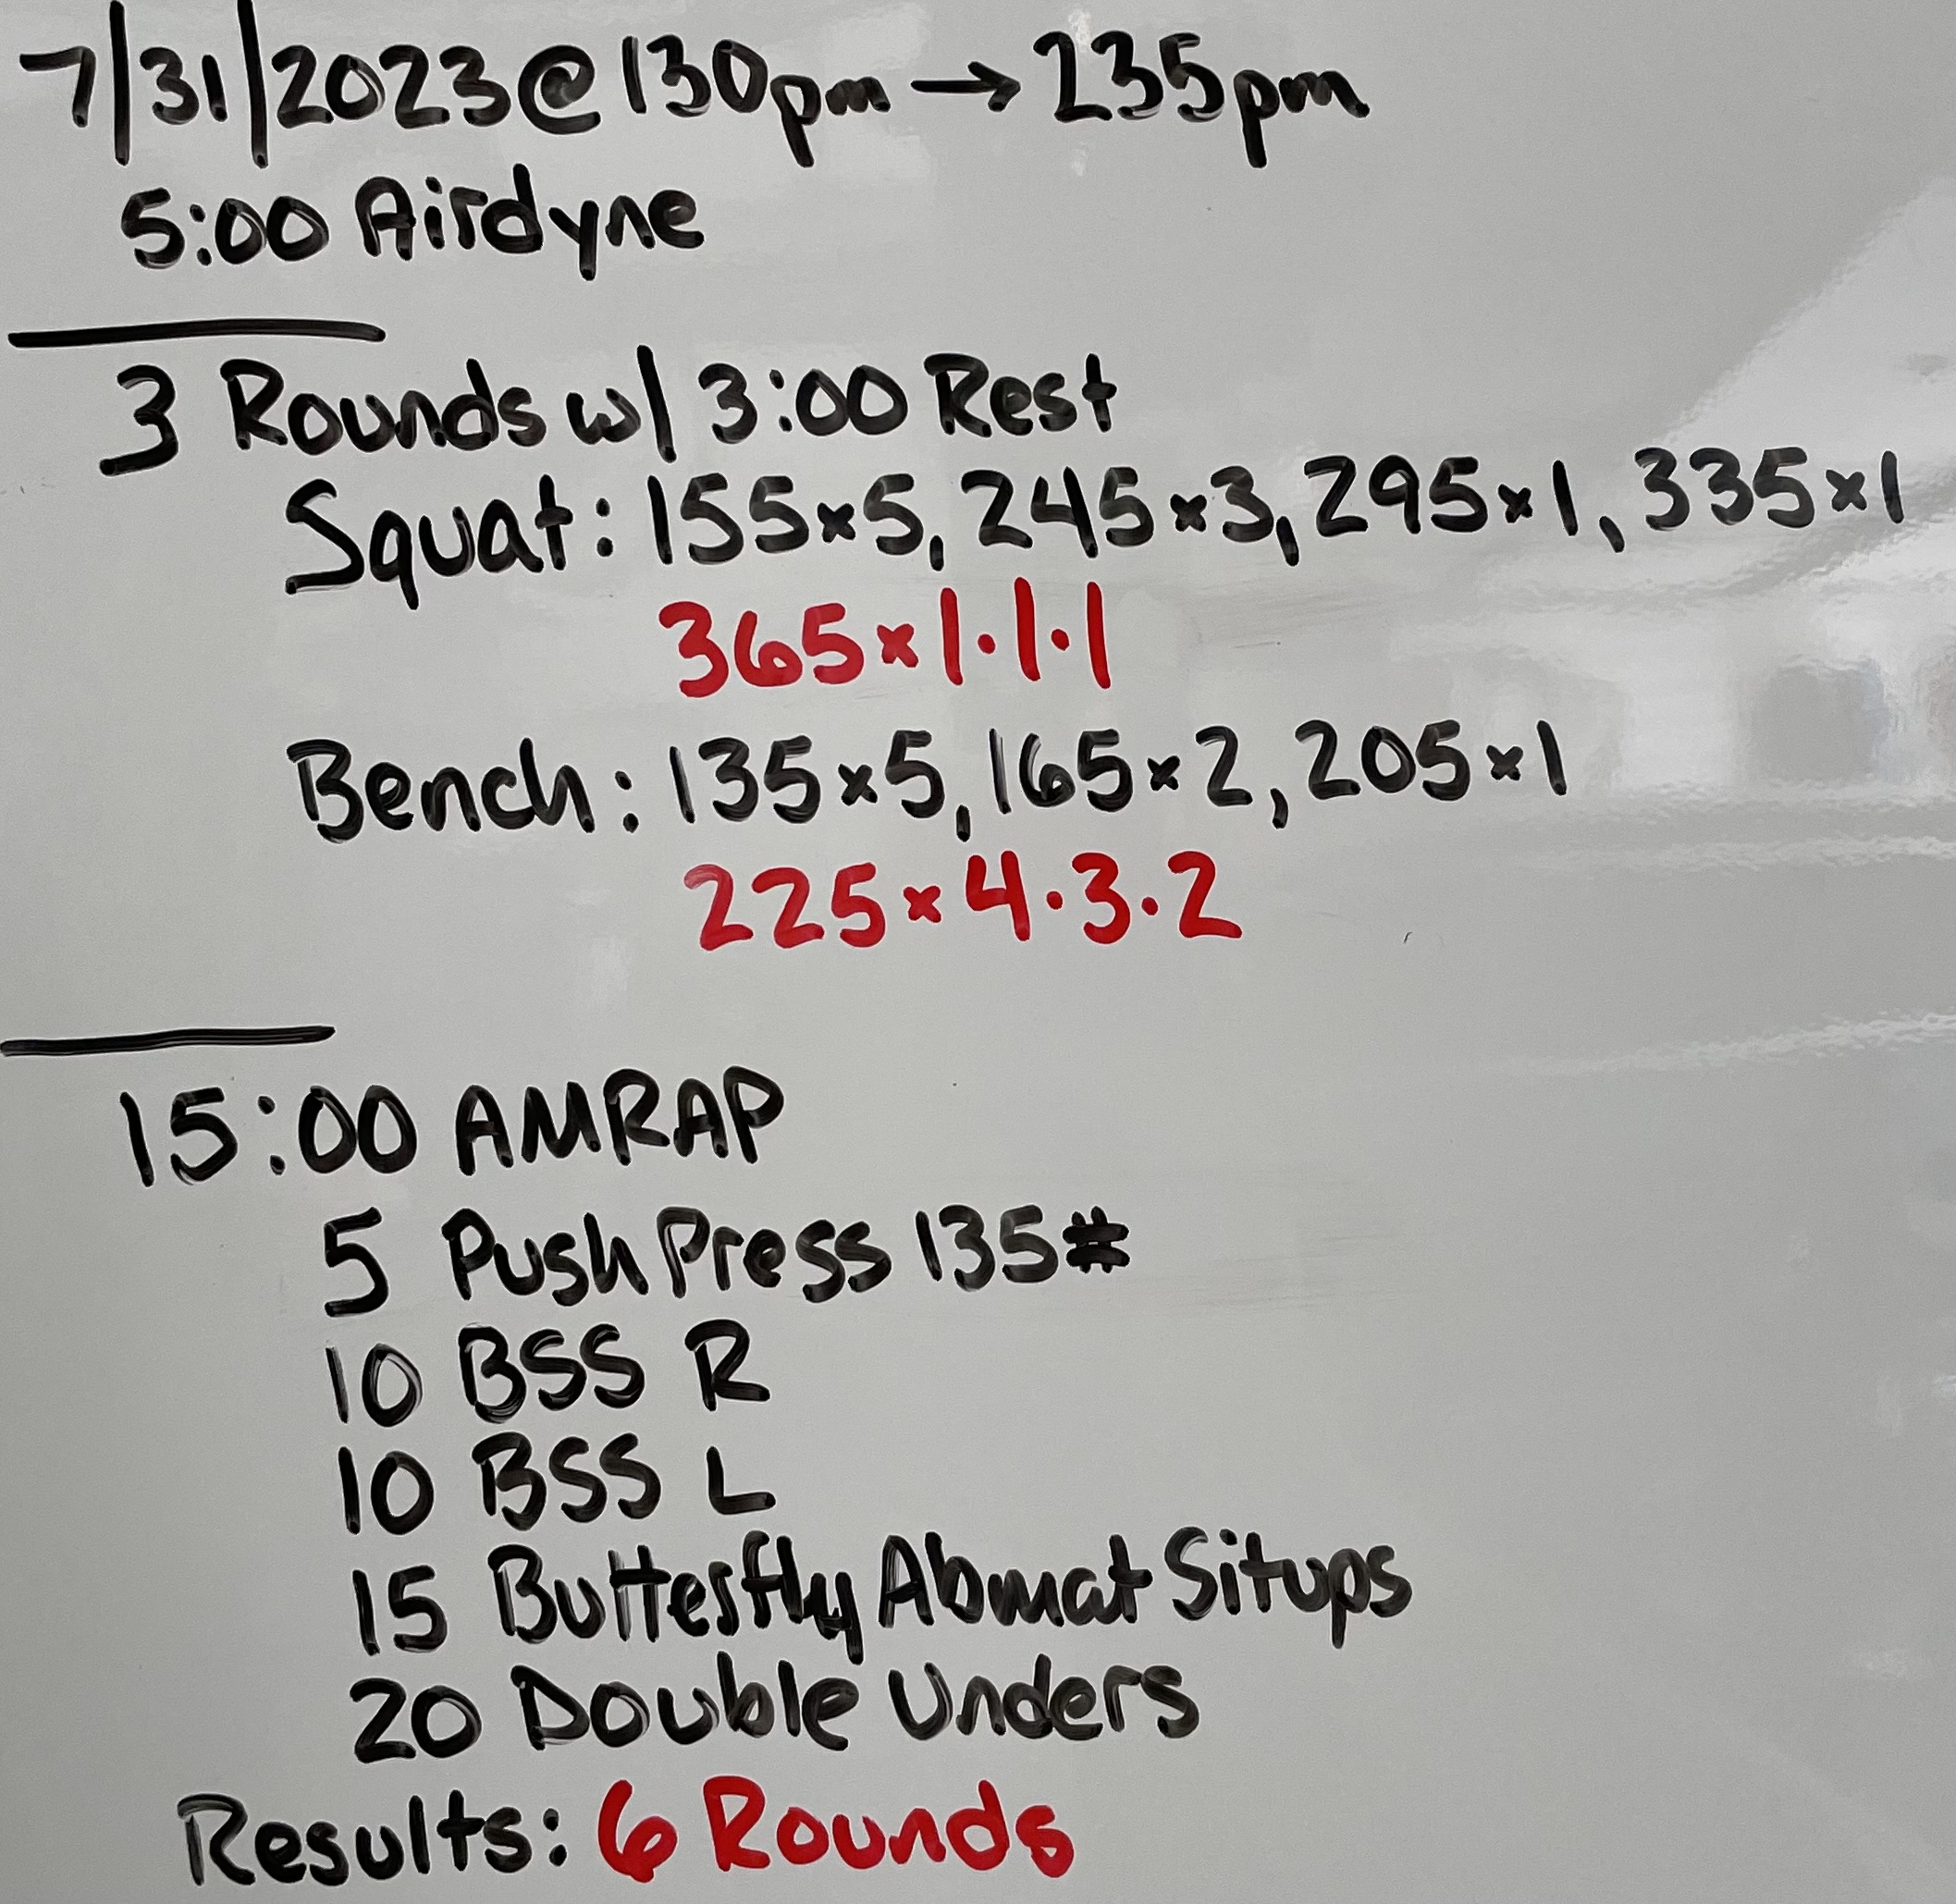 7/31/2023@130pm→235pm
5:00 Airdyne
3 Rounds w/ 3:00 Rest
Squat: 155×5, 245×3, 295×1, 335×1
365×1·1·1
Bench: 135×5, 165×2, 205×1
225×4·3·2
15:00 AMRAP
5 Push Press 135#
10 BSS R
10 BSS L
15 Butterfly Abmat Situps
20 Double Unders
Results: 6 Rounds